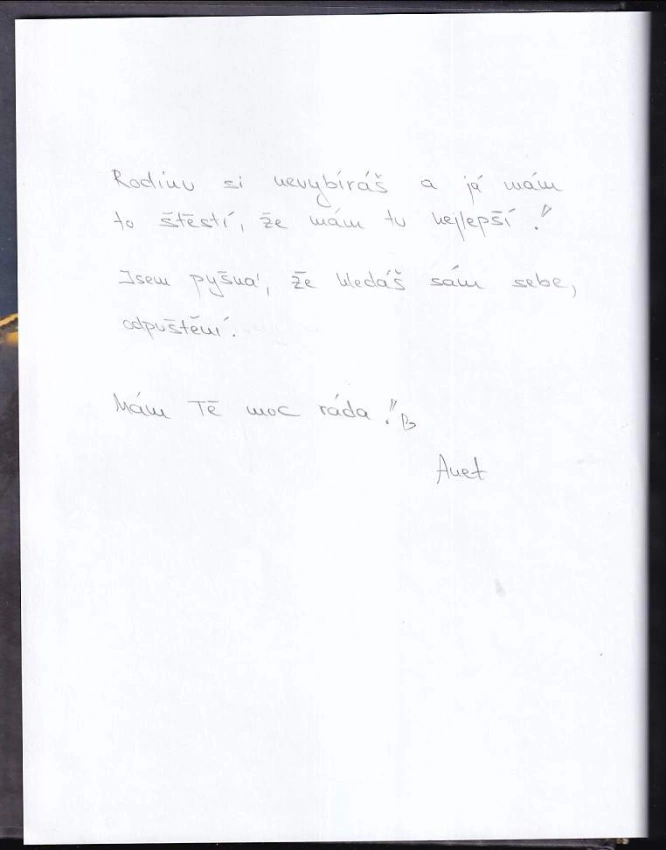 Rodinu si nevybíráš a já mám
to štěstí, že mám tu nejlepší!
Jsem pyšná, že hledáš sám sebe,
odpuštění.
Mám Tě moc ráda!
Anet